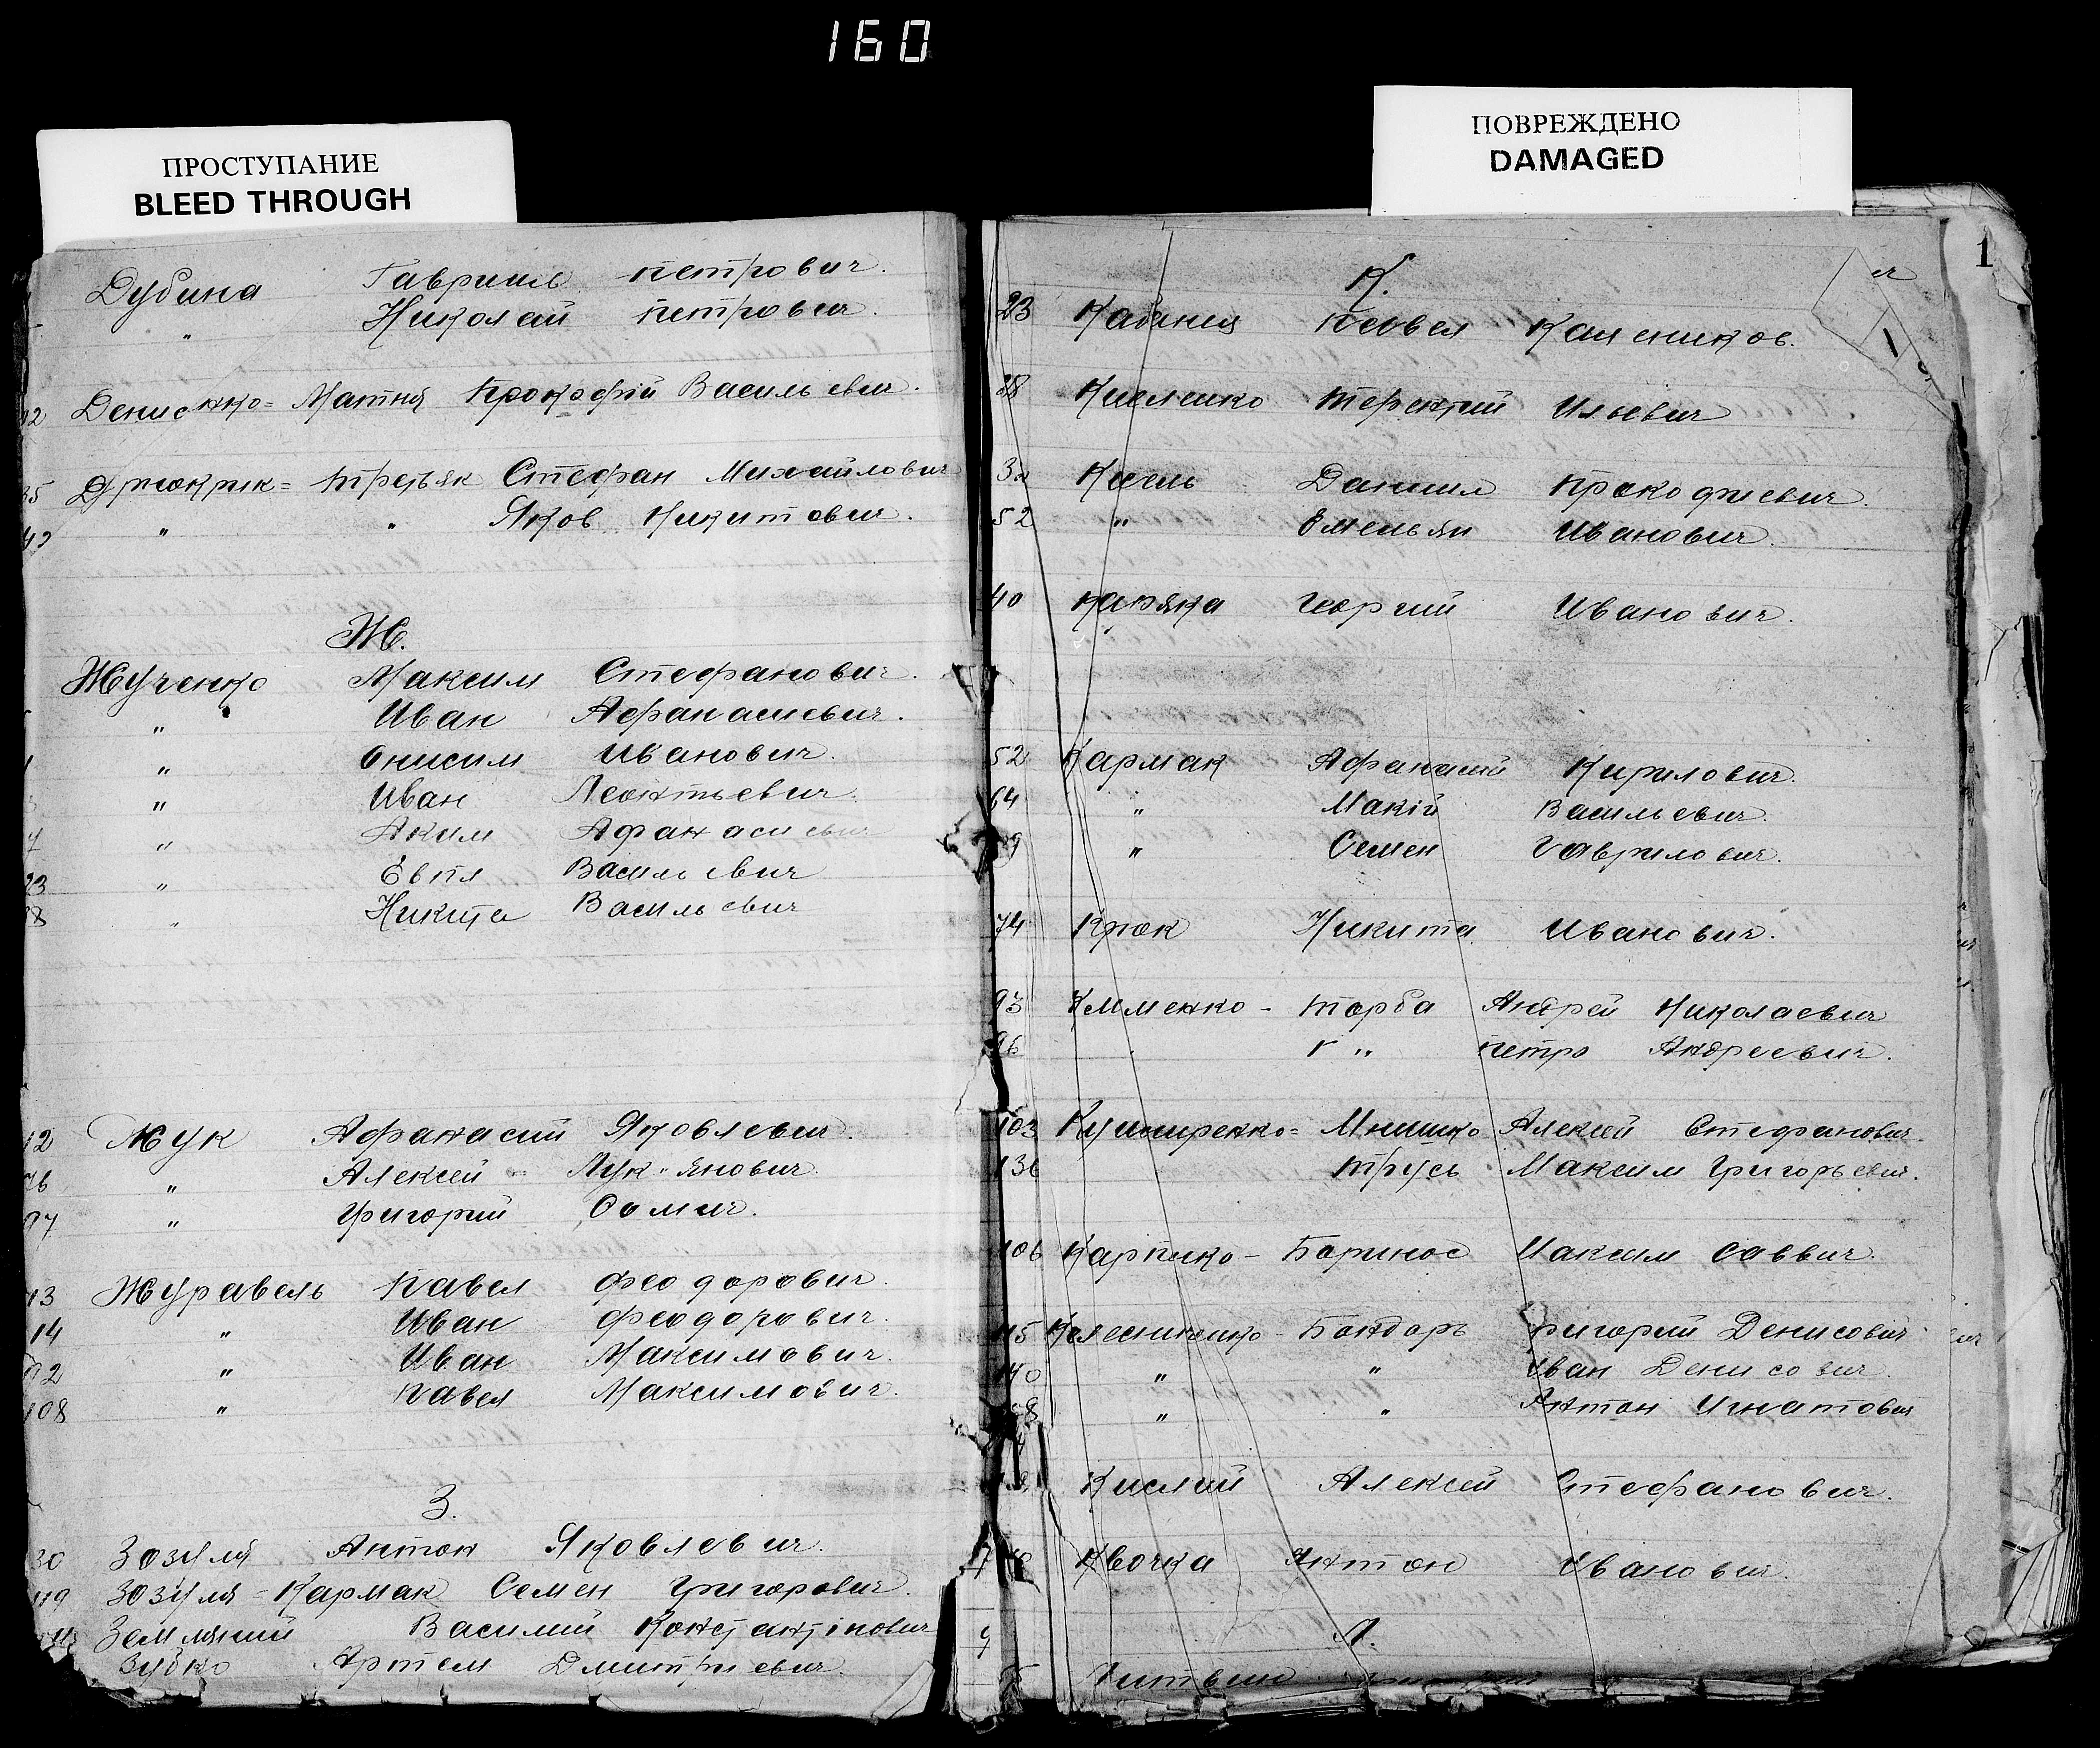 160
ПРОСТУПАНИЕ
BLEED THROUGH
ПОВРЕЖДЕНО
DAMAGED
Дубина Гавриил Петрович.
" Николай Петрович.
Денисенко= Матня Прокофій Васильевич.
35 Третьяк Стефан Михайлович
42 " " Яков Никитович.
Ж.
Жученко Максим Стефанович.
" Иван Афанасиевич.
" Онисим Иванович.
" Иван Леонтьевич.
" Аким Афанасиевич
23 " Евпл Васильевич
" Никита Васильевич
12 Жук Афанасий Яковлевич.
76 " Алексей Лук"янович.
97 " Григорий Сомич.
13 Журавель Павел Феодорович.
14 " Иван Феодорович.
92 " Иван Максимович.
108 " Павел Максимович.
З.
30 Зозуля Антон Яковлевич.
119 Зозуля-Кармак Семен Григорович.
Земляний Василий Константінович
Зубко Артем Дмитриевич.
1
К.
23 Кабанец Павел Калеников.
28 Терентий Ильевич
Кисель Даниил Прокофиевич.
52 " Емельян Иванович.
40 Каряка Георгий Иванович.
52 Кармак Афанасий Кирилович.
64 " Макій Васильевич.
" Семен Гаврилович.
74 Крюк Никита Иванович.
93 Клименко - Торба Андрей Николаевич
96 " Петро Андреевич.
103 Кушниренко= Мишко Алексей Стефанович.
136 Трусь Максим Григорьевич.
106 Карпенко- Баринос Максим Саввич.
115 Колесниченко- Бондарь Григорий Денисович
140 " " Иван Денисович.
" " Антон Игнатович
Кислий Алексей Стефанович.
Квочка Антон Иванович.
Л.
Литвин